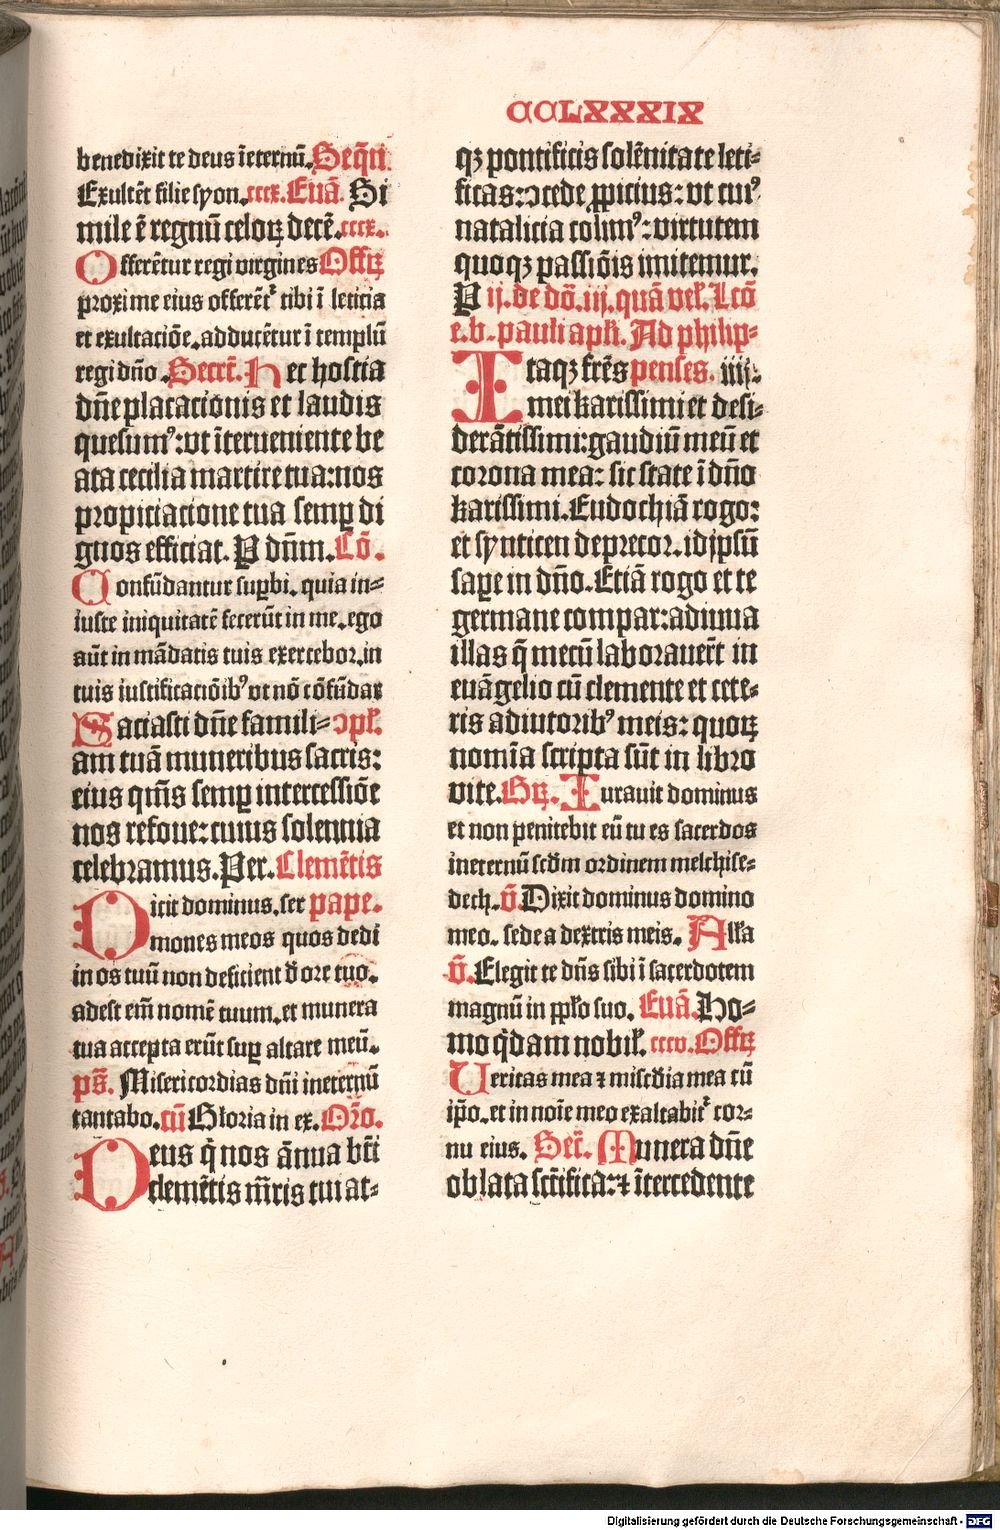 CCLXXXIX
benedixit te deus īeternū. Seq̄n
Exultēt filie syon. cccx. Euā. Si
mile ē regnū celoꝝ decē. cccx.
Offerētur regi virgines Offꝝ
proxime eius offerēt᷑ tibi ī leticia
et exultaciōe. adducētur ī templū
regi dn̄o. Secret̄. Hec hostia
dn̄e placacionis et laudis
quesumꝰ: vt īterueniente be
ata cecilia martire tua: nos
propiciacione tua semꝑ di
gnos efficiat. P dn̄m. Cō.
Confūdantur suꝑbi. quia in⸗
iuste iniquitatē fecerūt in me. ego
aūt in mādatis tuis exercebor. in
tuis iustificaciōibꝰ vt nō cōfūdar
Saciasti dn̄e famili⸗ ↄpl̄.
am tuā muneribus sacris:
eius qm̄s semꝑ intercessiōe
nos refoue: cuius solennia
celebramus. Per. Clemētis
Dicit dominus. ser pape.
mones meos quos dedi
in os tuū non deficient d̄ ore tuo.
adest em̄ nomē tuum. et munera
tua accepta erūt suꝑ altare meū.
ps̄. Misericordias dn̄i ineternū
cantabo. cū Gloria in ex. Or̄o.
Deus q̇ nos ānua bt̄i
clemētis mr̄is tui at⸗
qꝫ pontificis solēnitate leti⸗
ficas: ↄcede ꝓpicius: vt cuiꝰ
natalicia colimꝰ: virtutem
quoqꝫ passiōis imitemur.
P ij. de dō. iij. quā vel̄. Lcō
e. b. pauli apl̄i. Ad philip⸗
Itaqꝫ frēs penses. iiij.
mei karissimi et desi⸗
derātissimi: gaudiū meū et
corona mea: sic state ī dn̄o
karissimi. Eudochiā rogo:
et synticen deprecor. idipsū
saꝑe in dn̄o. Etiā rogo et te
germane compar: adiuua
illas q̄ mecū laborauer̄t in
euāgelio cū clemente et cete⸗
ris adiutoribꝰ meis: quoꝝ
nomīa scripta sūt in libro
vite. Gꝝ. Iurauit dominus
et non penitebit eū tu es sacerdos
ineternū scd̄m ordinem melchise⸗
dech. v̄. Dixit dominus domino
meo. sede a dextris meis. All̄a
v̄. Elegit te dn̄s sibi ī sacerdotem
magnū in ppl̄o suo. Euā. Ho⸗
mo q̇dam nobil̄. cccv. Offꝝ
Ueritas mea ⁊ mīscd̄ia mea cū
ip̄o. et in noīe meo exaltabit᷑ cor⸗
nu eius. Secr̄. Munera dn̄e
oblata sct̄ifica: ⁊ ītercedente
Digitalisierung gefördert durch die Deutsche Forschungsgemeinschaft - DFG